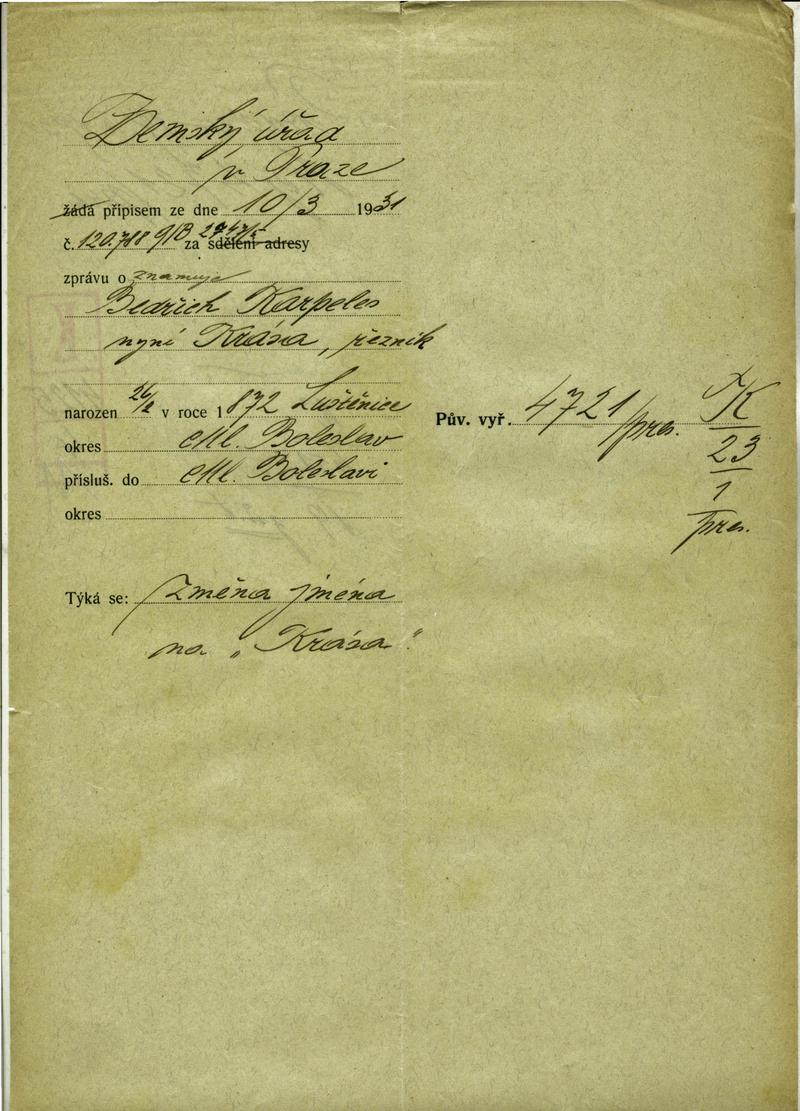 Zemský úřad
v Praze
žádá přípisem ze dne 10/3 1931
č. 120.788 za sdělení adresy
zprávu o znamuje
Bedřich Karpeles
nyní Krása, řezník
narozen 26/2 v roce 1872 Luštěnice
okres Ml. Boleslav
přísluš. do Ml. Boleslavi
okres
Týká se: změna jména
na „Krása“
Pův. vyř. 4721/pres. K
23
1
pres.